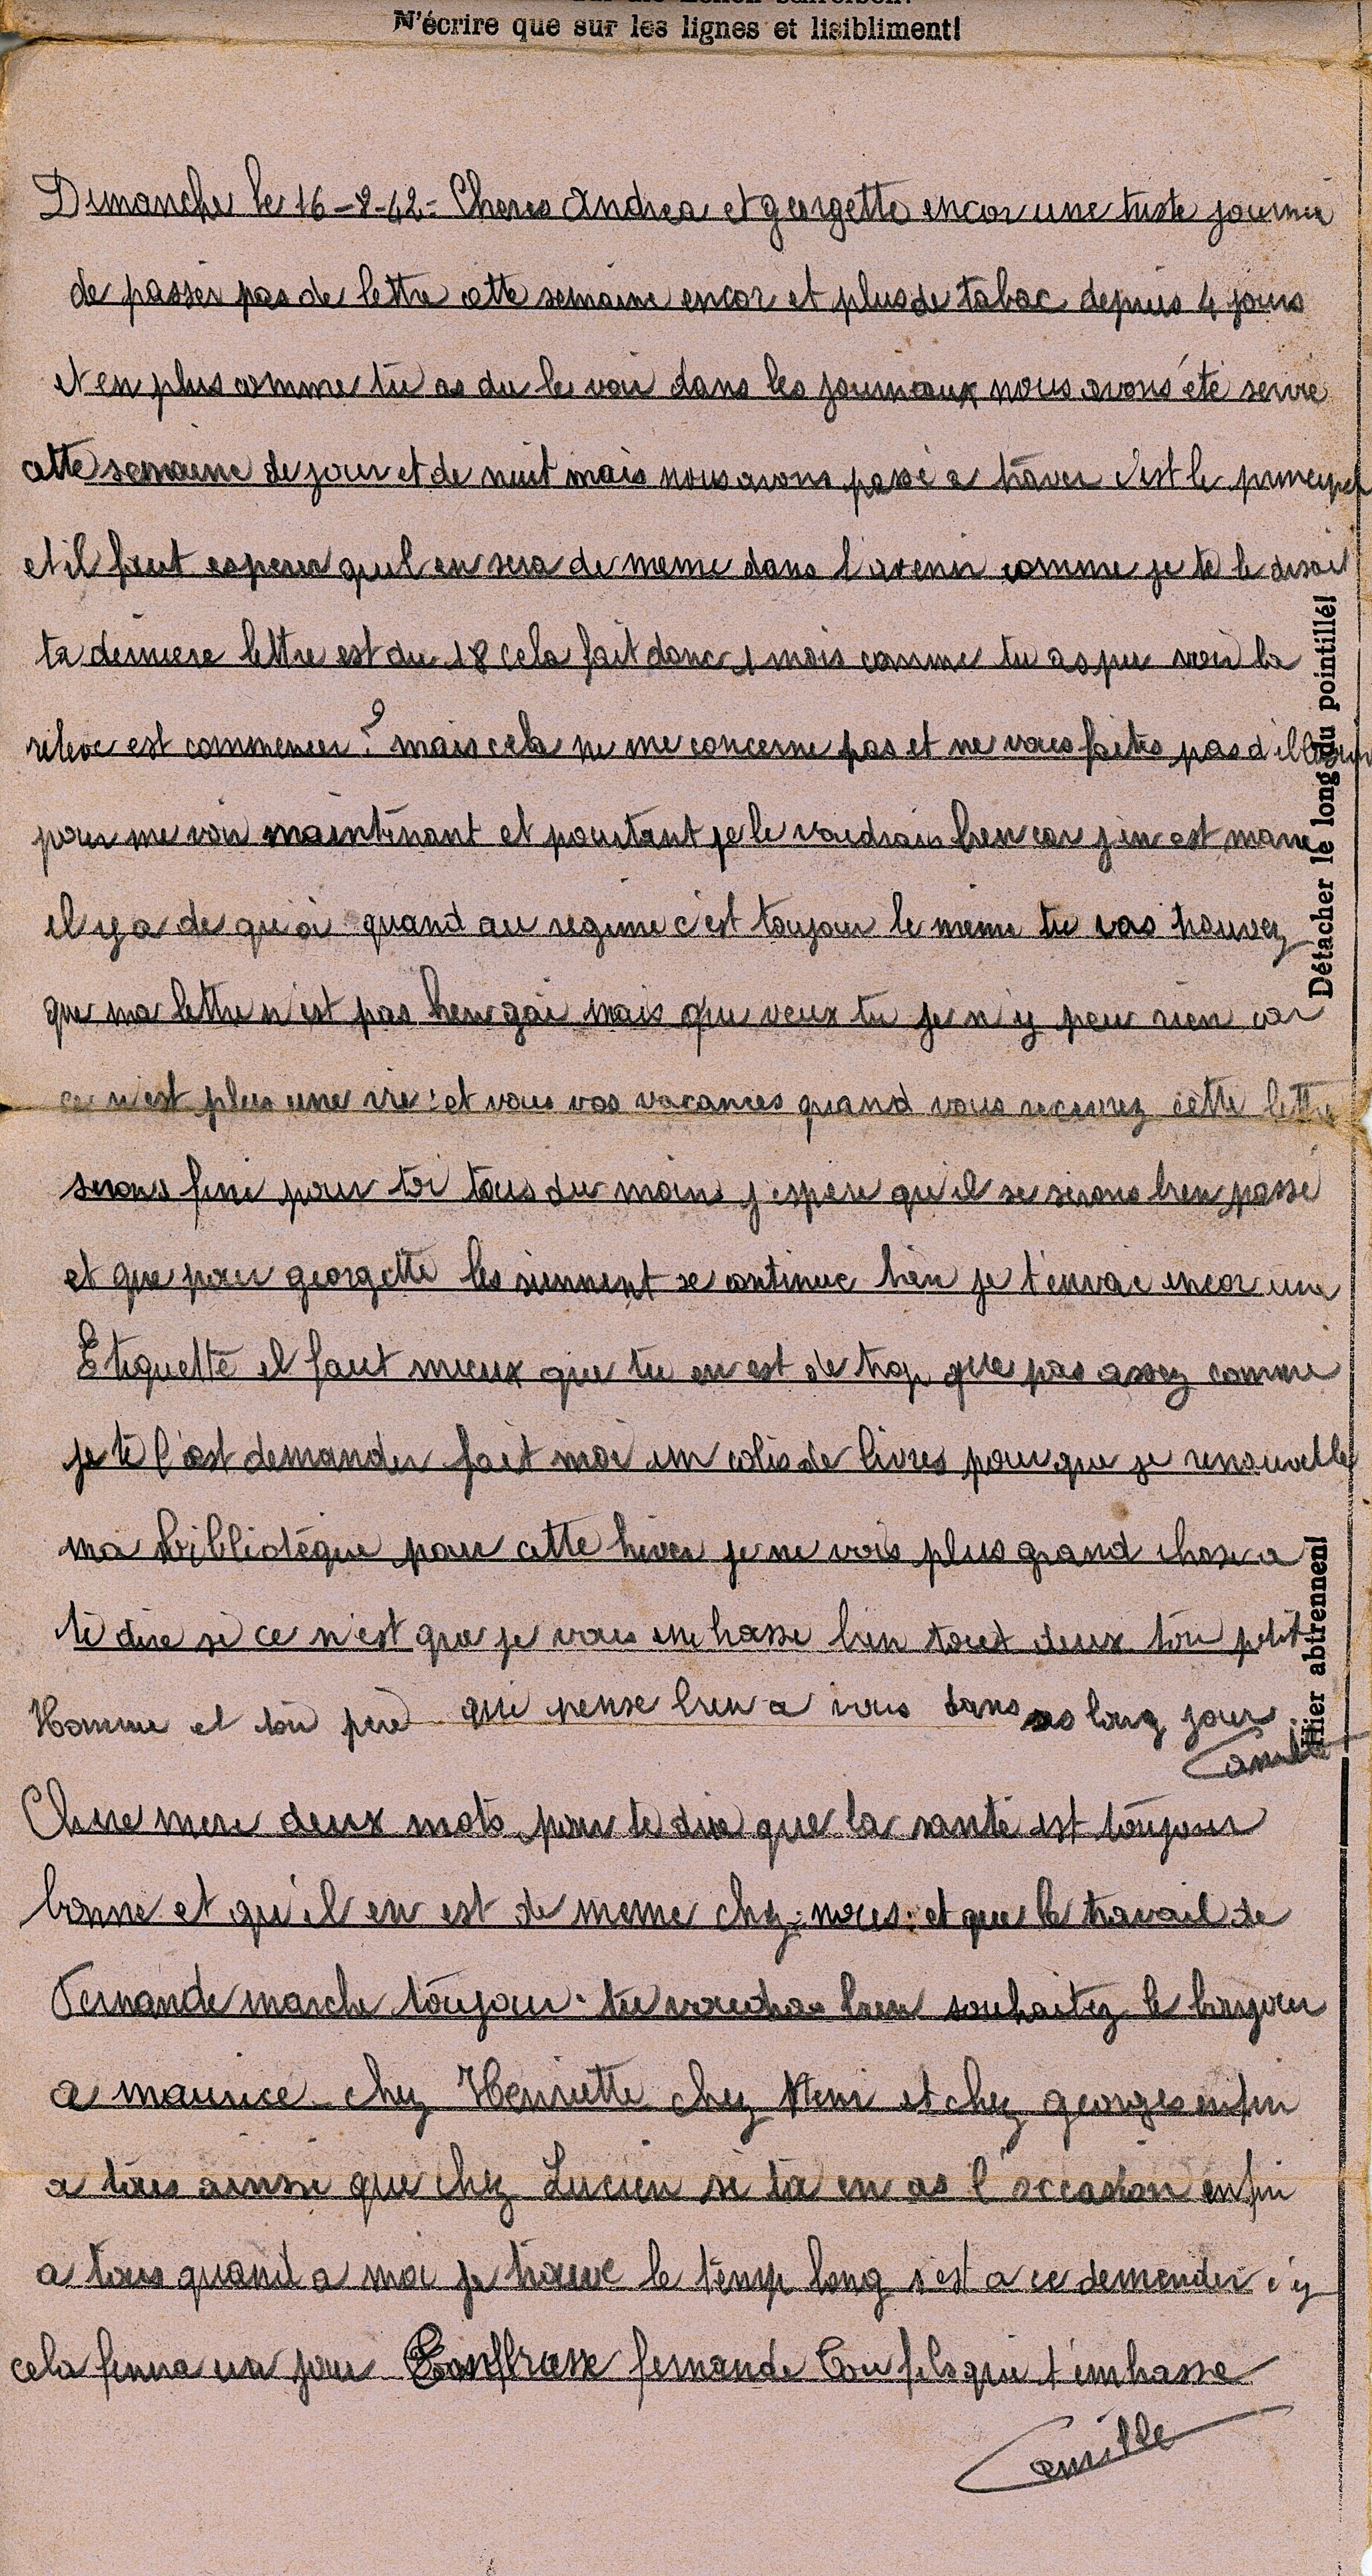 N'écrire que sur les lignes et lisibliment!
Dimanche le 16-8-42- Cheres Andrea et georgette encor une triste journée
de passer pas de lettre cette semaine encor et plus de tabac depuis 4 jours
et en plus comme tu as du le voir dans les journaux nous avons été servie
cette semaine de jour et de nuit mais nous avons passé a traver c'est le principal
et il faut esperer quil en sera de meme dans l'avenir comme je te le disait
ta derniere lettre est du 18 cela fait donc 1 mois comme tu as pu voir la
releve est commencer? mais cela ne me concerne pas et ne vous faites pas d'illusion
pour me voir maintenant et pourtant je le voudrais bien car j'en est marre
il y a de quoi quand au regime c'est toujour le meme tu vas trouvez
que ma lettre n'est pas bien gai mais que veux tu je n'y peu rien car
ce n'est plus une vie: et vous vos vacances quand vous recevrez cette lettre
serons fini pour toi tous du moins j'espere qu'il se serons bien passé
et que pour georgette les siennent se continue bien je t'envoie encor une
Etiquette il faut mieux que tu en est de trop que pas assez comme
je te l'est demander fait moi un colis de livres pour que je renouvelle
ma bibliotèque pour cette hiver je ne vois plus grand chose a
te dire si ce n'est que je vous embrasse bien tout deux ton petit
Homme et ton père qui pense bien a vous dans ses long jour
Camille
Chere mere deux mots pour te dire que la santé est toujour
bonne et qu'il en est de meme chez-nous: et que le travail de
Fernande marche toujour. tu voudras bien souhaitez le bonjour
a maurice- chez Henriette chez et chez georges enfin
a tous ainsi que chez Lucien si ta en as l'occasion enfin
a tous quand a moi je trouve le temp long s'est a ce demander s'y
cela finira un jour fernande Ton fils qui t'embrasse
Camille
Détacher le long du pointillé!
Hier abtrennen!